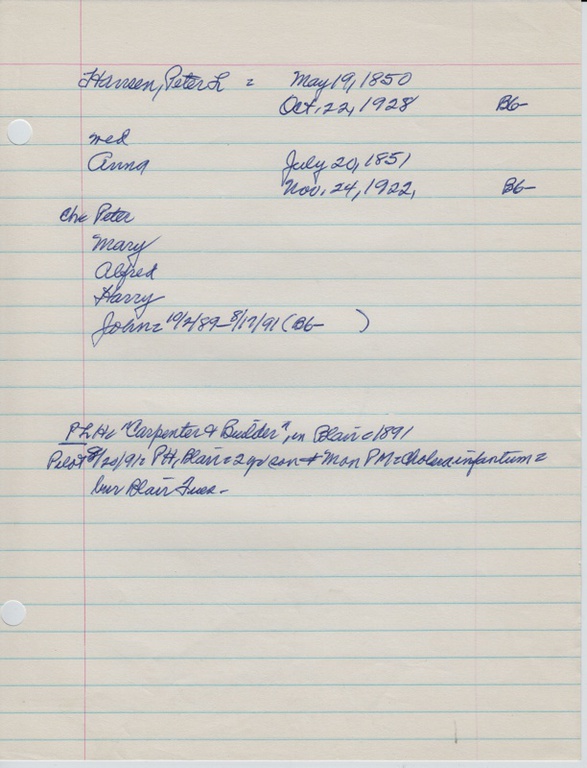 Hansen, Peter L = May 19, 1850
Oct. 22, 1928 BG-
med
Anna July 20, 1851
Nov. 24, 1922, BG-
Ch= Peter
Mary
Alfred
Harry
John= 10/2/89-8/17/91 (BG- )
PLH= "Carpenter & Builder", in Blair= 1891
Pilot 8/20/91= PH, Blair= 2 yr son + Mon PM= Cholera infantum=
bur Blair Tues.-